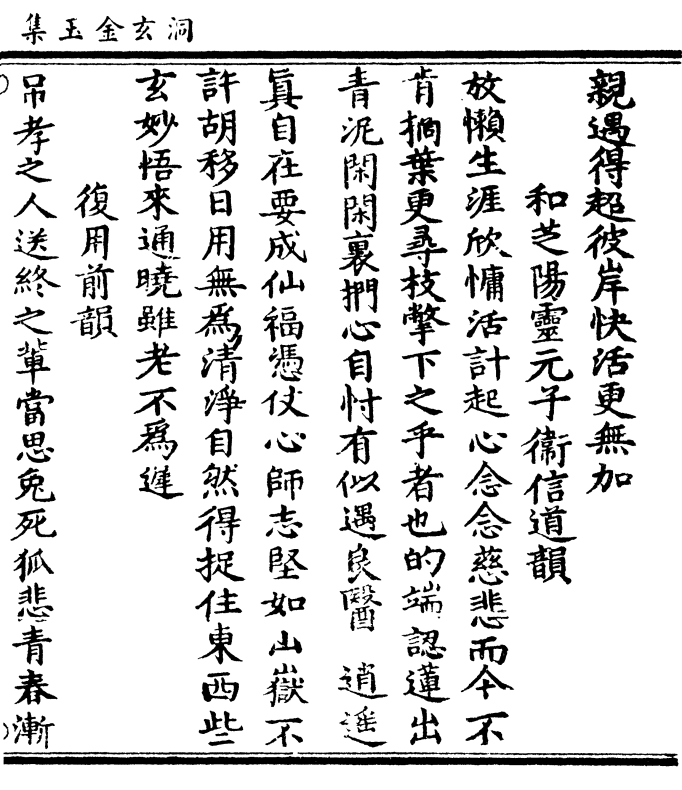 洞玄金玉集
親遇得超彼岸快活更無加
和芝陽靈元子衞信道韻
放懶生涯欣慵活計起心念念慈悲而今不
肯摘葉更尋枝撆下之乎者也的端認蓮出
青泥閑閑裏捫心自忖有似遇良醫　逍遥
真自在要成仙福憑仗心師志堅如山嶽不
許胡移日用無爲清淨自然得捉住東西些
玄妙悟來通曉雖老不爲遲
復用前韻
吊孝之人送終之輩當思兔死狐悲青春漸